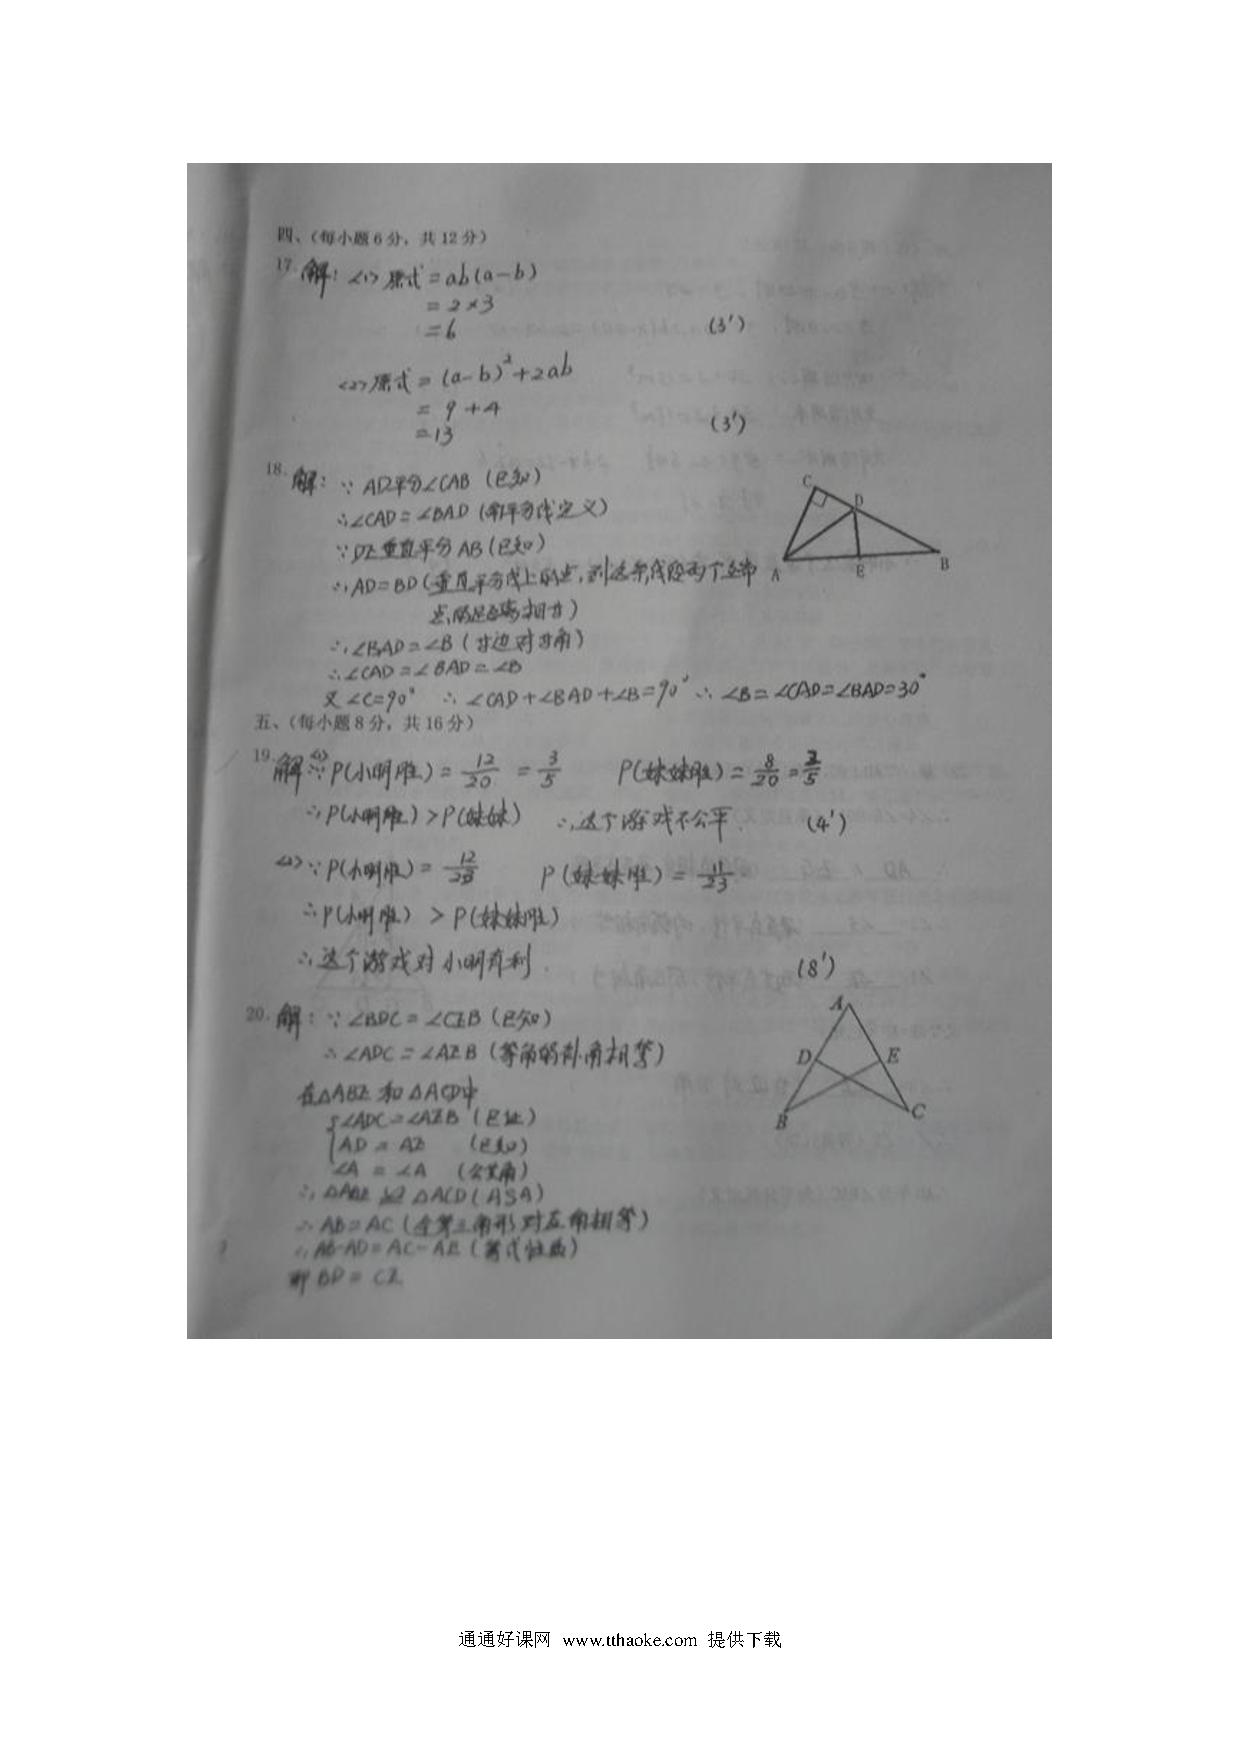 四、(每小题6分，共12分)
17. 解：<1> 原式 = ab(a-b)
= 2×3
= 6 (3′)
<2> 原式 = (a-b)²+2ab
= 9+4
= 13 (3′)
18. 解：∵ AD平分∠CAB (已知)
∴∠CAD=∠BAD (角平分线定义)
∵DE垂直平分AB(已知)
∴AD=BD(垂直平分线上的点,到这条线段两个
点的距离相等)
∴∠BAD=∠B (等边对等角)
∴∠CAD=∠BAD=∠B
又∠C=90° ∴ ∠CAD+∠BAD+∠B=90° ∴ ∠B=∠CAD=∠BAD=30°
C D A E B
五、(每小题8分，共16分)
19. 解 <1> ∵P(小明胜)= 12/20 = 3/5 P(妹妹胜)= 8/20 = 2/5
∴P(小明胜)>P(妹妹) ∴这个游戏不公平. (4′)
<2> ∵P(小明胜)= 12/23 P(妹妹胜)= 11/23
∴P(小明胜) > P(妹妹胜)
∴这个游戏对小明有利. (8′)
20. 解：∵∠BDC=∠CEB(已知)
∴∠ADC=∠AEB(等角的补角相等)
在△ABE和△ACD中
∠ADC=∠AEB (已证)
AD = AE (已知)
∠A = ∠A (公共角)
∴△ABE≌△ACD(ASA)
∴AB=AC(全等三角形对应角相等)
∴AB-AD=AC-AE(等式性质)
即BD=CE
A D E B C
通通好课网 www.tthaoke.com 提供下载